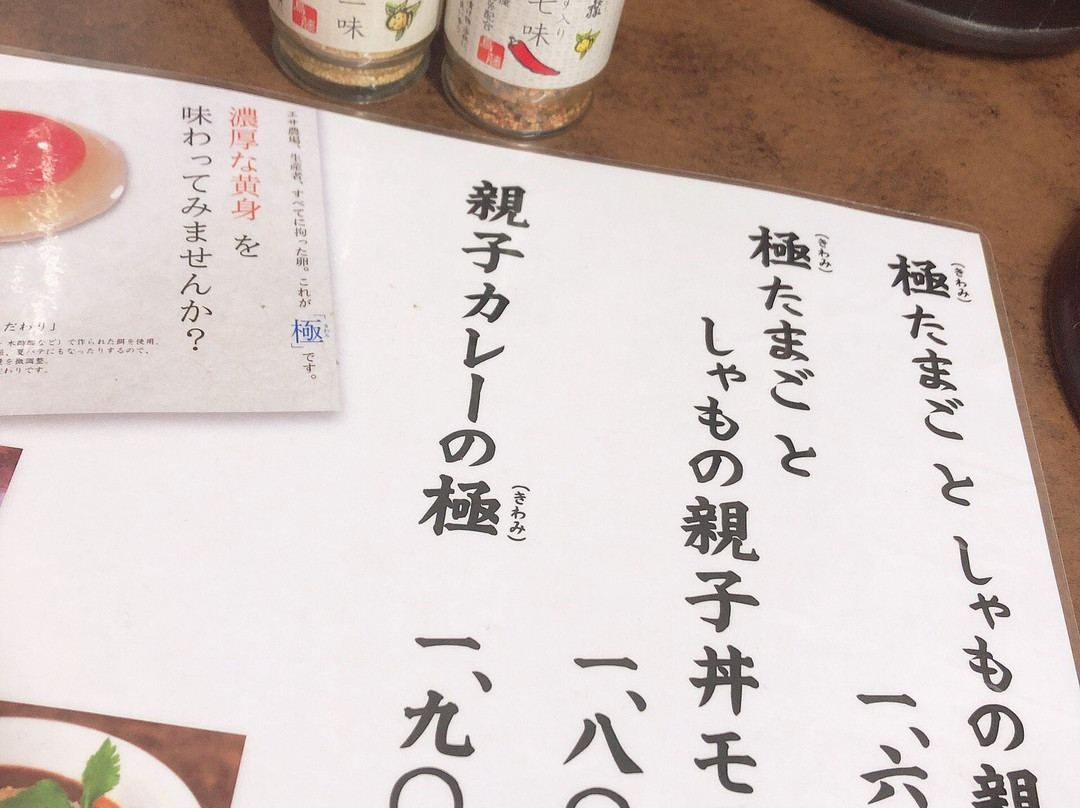 極たまごとしゃもの親
(きわみ)
一、六
極たまごと
(きわみ)
しゃもの親子丼モ
一、八〇
親子カレーの極
(きわみ)
一、九〇
エサ農場、生産者、すべてに拘った卵。これが
「極」です。
濃厚な黄身を
味わってみませんか？
だわり」
など）で作られた餌を使用。
夏バテにもなったりするので、
を微調整。
わりです。
一味
七味
入り